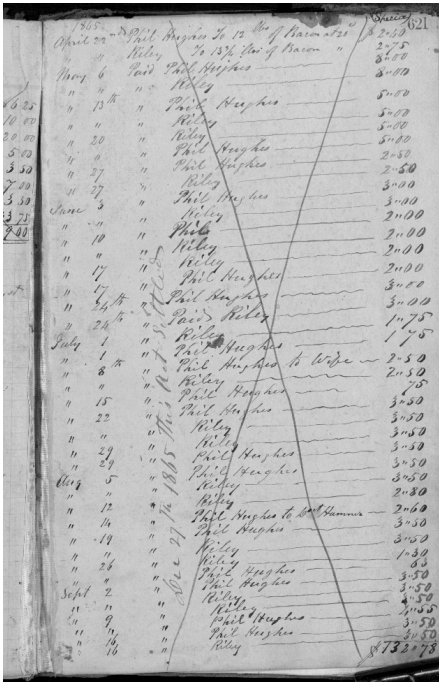 1865 Specie 621
April 22nd Phil Hughes To 12 lbs of Bacon at 20 $2"40
" " Riley To 13¾ lbs of Bacon " 2"75
May 6 Paid Phil Hughes 8"00
" " " Riley 8"00
" 13th " Phil Hughes 5"00
" " " Riley 5"00
" 20 " Riley 5"00
" " " Phil Hughes 5"00
" 27 " Phil Hughes 2"50
" 27 " Riley 2"50
June 3 " Phil Hughes 3"00
" " " Riley 3"00
" 10 " Phil 2"00
" " " Riley 2"00
" " Riley 2"00
" 17 " Phil Hughes 2"00
" 17 " Phil Hughes 3"00
" 24th " Paid Riley 3"00
" 24th " Riley 1"75
July 1 " Phil Hughes 1"75
" 1 " Phil Hughes to Wife 2"50
" 8th " Riley 2"50
" " " Phil Hughes 75
" 15 " Phil Hughes 3"50
" 22 " Riley 3"50
" " " Riley 3"50
" 29 " Phil Hughes 3"50
" 29 " Phil Hughes 3"50
Aug 5 " Riley 3"50
" " " Riley 2"80
" 12 " Phil Hughes to Hammer 2"60
" 14 " Phil Hughes 3"50
" 19 " Riley 3"50
" " " Riley 1"30
" 26 " Phil Hughes 63
" " " Phil Hughes 3"50
Sept 2 " Riley 3"50
" " " Riley
" 9 " Phil Hughes 3"50
" 16 " Phil Hughes 3"50
" 16 " Riley $132"78
Dec 29th 1865 This act Settled
6 25
10 00
20 00
5 00
3 50
7 00
3 50
3 75
9 00